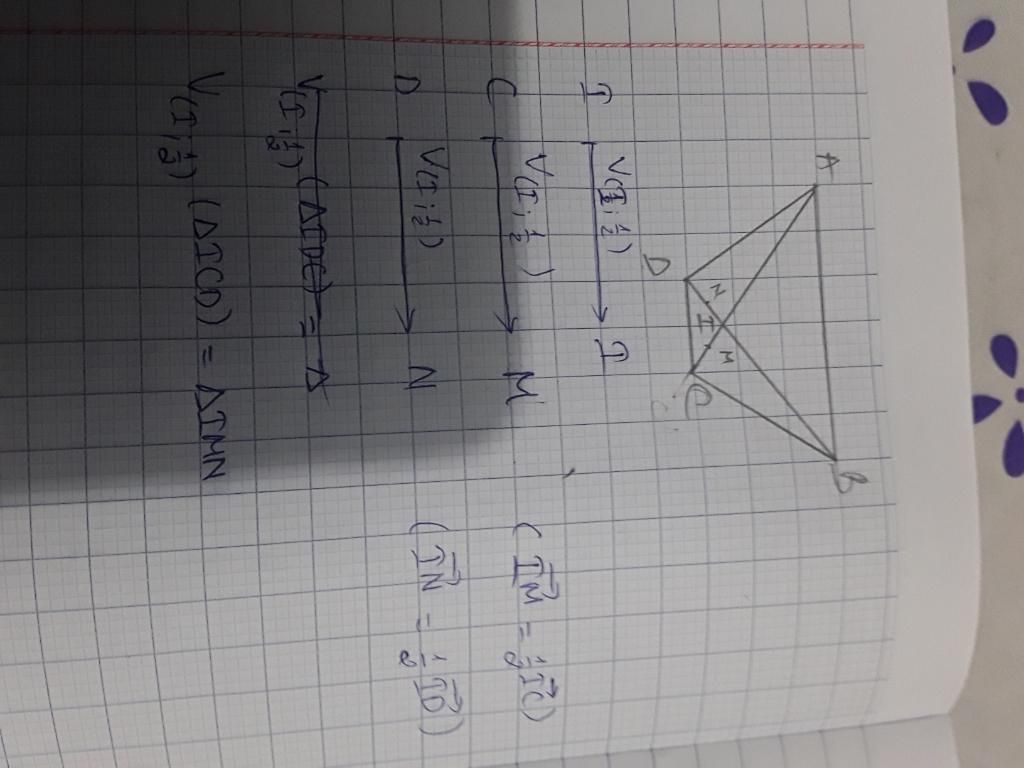 A B
D N I M C
I V(I; 1/2) I
C V(I; 1/2) M (IM⃗ = 1/2 IC⃗)
D V(I; 1/2) N (IN⃗ = 1/2 ID⃗)
V(I; 1/2) (ΔIDC) = Δ
V(I; 1/2) (ΔICD) = ΔIMN